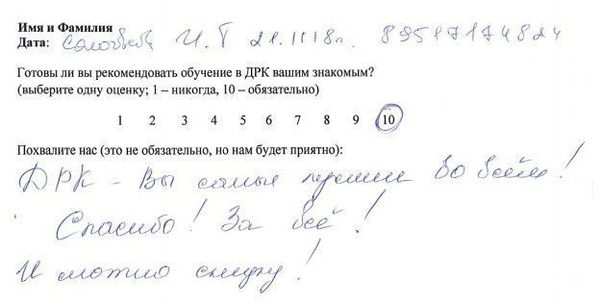 Имя и Фамилия
Дата: Соловьева И.Т 21.11.18г.
Готовы ли вы рекомендовать обучение в ДРК вашим знакомым?
(выберите одну оценку; 1 – никогда, 10 – обязательно)
1 2 3 4 5 6 7 8 9 10
Похвалите нас (это не обязательно, но нам будет приятно):
ДРК - Вы самые лучшие во всём!
Спасибо! За всё!
И можно скидку!